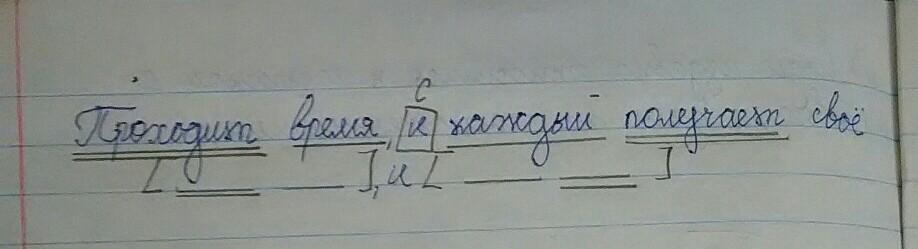 с
Проходит время, и каждый получает своё
[ ], и [ ]